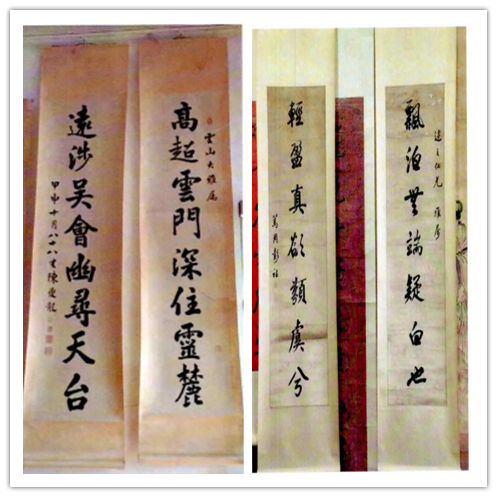 雲山大雅屬
高超雲門深住靈麓
遠涉吳會幽尋天台
甲申十月八十八叟陳夔龍
仁兄 雅屬
飄泊無端疑白也
輕盈真欲類虞兮